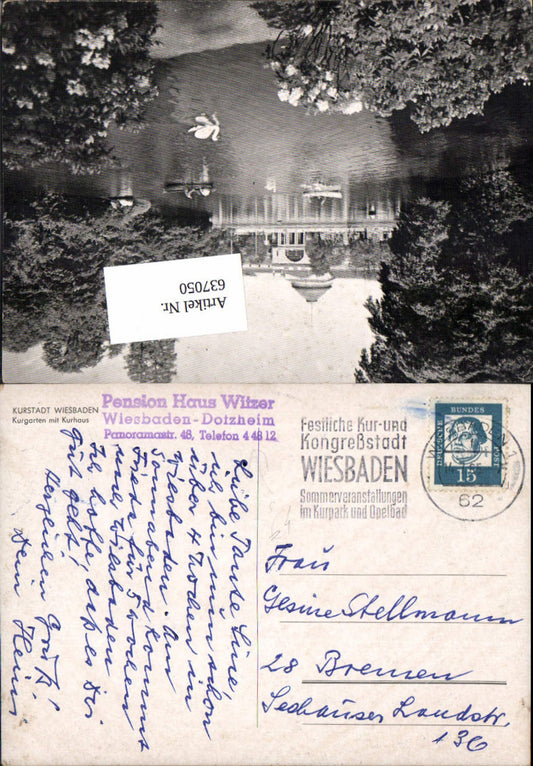 Artikel Nr.
637050
KURSTADT WIESBADEN
Kurgarten mit Kurhaus
Pension Haus Witzer
Wiesbaden-Dotzheim
Panoramastr. 48, Telefon 4 48 12
Festliche Kur- und
Kongreßstadt
WIESBADEN
Sommerveranstaltungen
im Kurpark und Opelbad
WIESBADEN 1
62
DEUTSCHE BUNDESPOST
15
Liebe Tante Sine,
ich bin nun schon
über 4 Wochen in
Wiesbaden. Am
Sonnabend kommt
Frieda für 5 Wochen
nach Wiesbaden
Ich hoffe, daß es Dir
gut geht!
Herzlichen Gruß!
Dein Heini
Frau
Gesine Stellmann
28 Bremen
Seehauser Landstr.
136